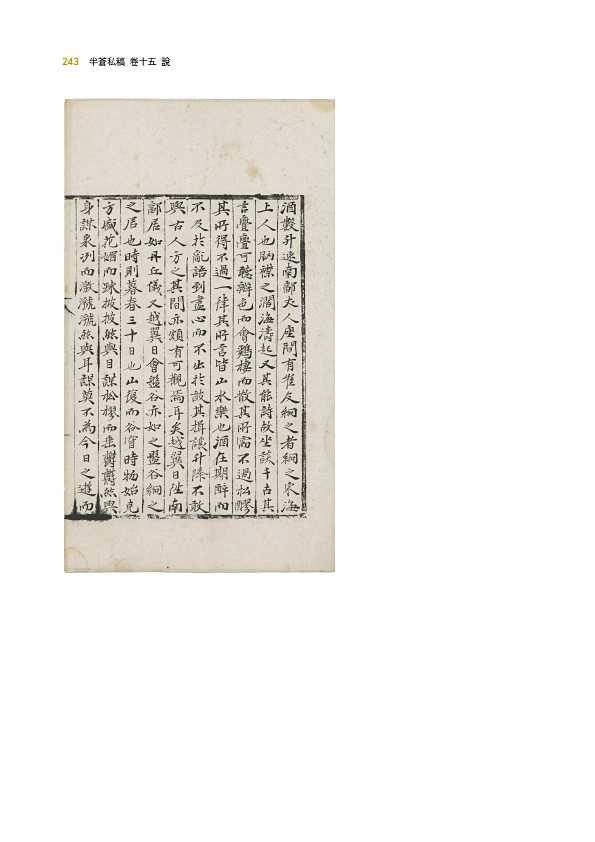 243 半蒼私稿 卷十五 說
酒數升速南鄰大人座間有崔友絅之者絅之家海
上人也胸襟之濶海濤起又其能詩故坐談千古其
言亹亹可聽辦色而會鷄棲而散其所需不過松醪
其所得不過一律其所言皆山水樂也酒在期醉而
不及於亂語到盡心而不出於敖其揖讓升降不敢
與古人方之其間亦頗有可觀焉耳矣越翼日陟南
鄰居如丹丘儀又越翼日會盤谷亦如之盤谷絅之
之居也時則暮春三十日也山複而谷窅時物始克
方盛花媚而踈披披然與目謀松樛而垂欝欝然與
身謀泉冽而激㶁㶁然與耳謀莫不為今日之遊而